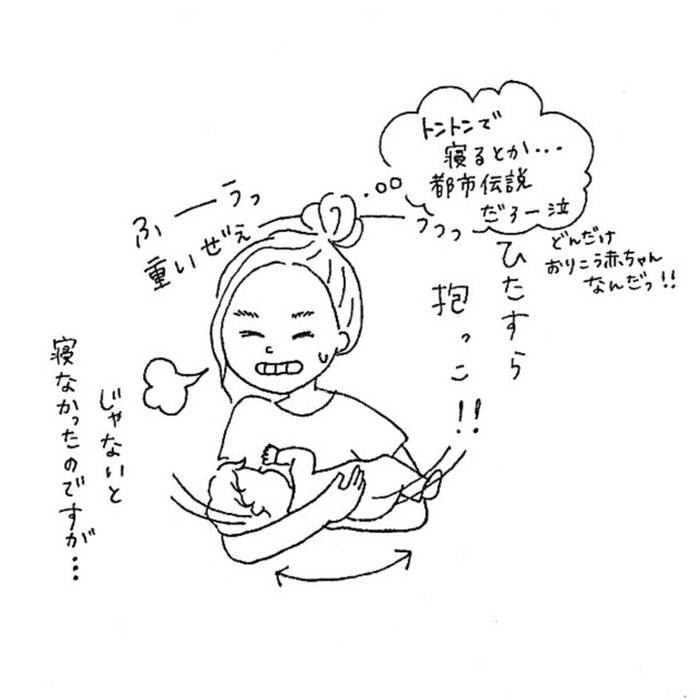 トントンで
寝るとか...
都市伝説
だろー泣
どんだけ
おりこう赤ちゃん
なんだっ!!
ふーうっ
重いぜぇ
うっっっ
ひたすら
抱っこ!!
じゃないと
寝なかったのですが...